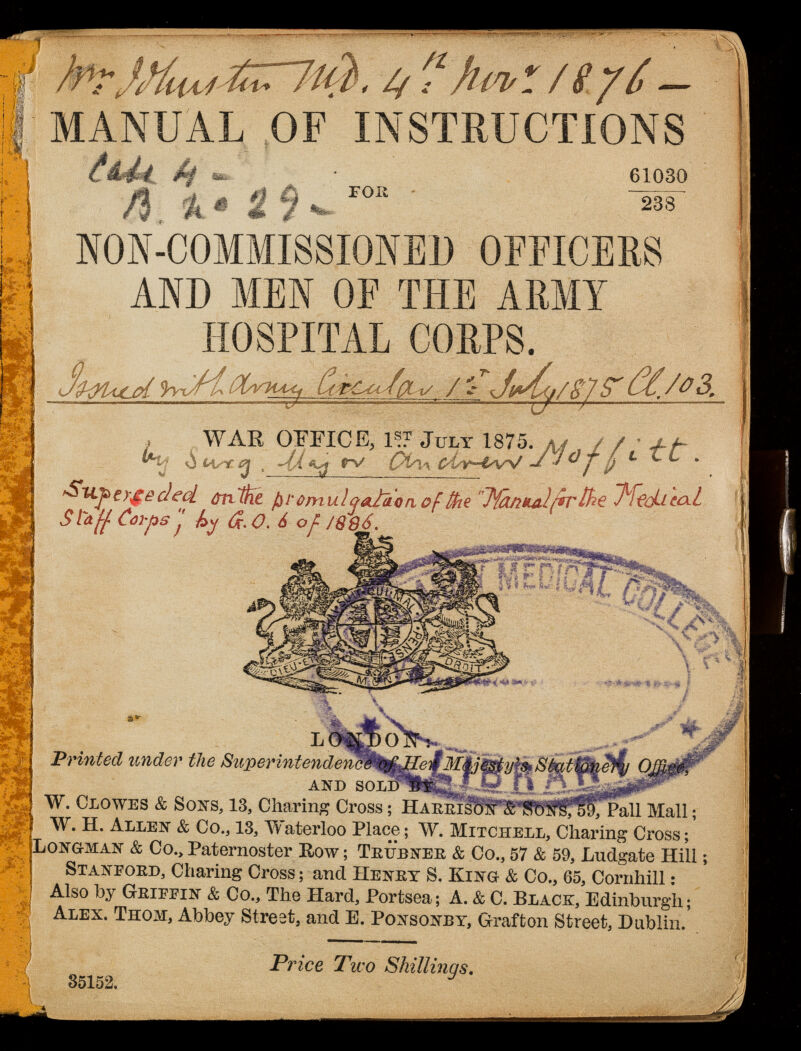 Wm Johnston M.D. 4th Novr 1876 —
MANUAL OF INSTRUCTIONS
Case 4 -
61030
FOR
B. No 29 -
238
NON-COMMISSIONED OFFICERS
AND MEN OF THE ARMY
HOSPITAL CORPS.
Issued with Army Circular 1st July 1875 Cl. 103.
WAR OFFICE, 1ST JULY 1875.
by Surg. Major Andrew Moffitt.
Superceded on the promulgation of the "Manual for the Medical
Staff Corps", by G.O. 6 of 1886.
DIEU ET MON DROIT
ARMY MEDICAL COLLEGE
LIBRARY
LONDON:
Printed under the Superintendence of Her Majesty's Stationery Office,
AND SOLD BY
W. CLOWES & SONS, 13, Charing Cross; HARRISON & SONS, 59, Pall Mall;
W. H. ALLEN & Co., 13, Waterloo Place; W. MITCHELL, Charing Cross;
LONGMAN & Co., Paternoster Row; TRÜBNER & Co., 57 & 59, Ludgate Hill;
STANFORD, Charing Cross; and HENRY S. KING & Co., 65, Cornhill:
Also by GRIFFIN & Co., The Hard, Portsea; A. & C. BLACK, Edinburgh;
ALEX. THOM, Abbey Street, and E. PONSONBY, Grafton Street, Dublin.
Price Two Shillings.
35152.